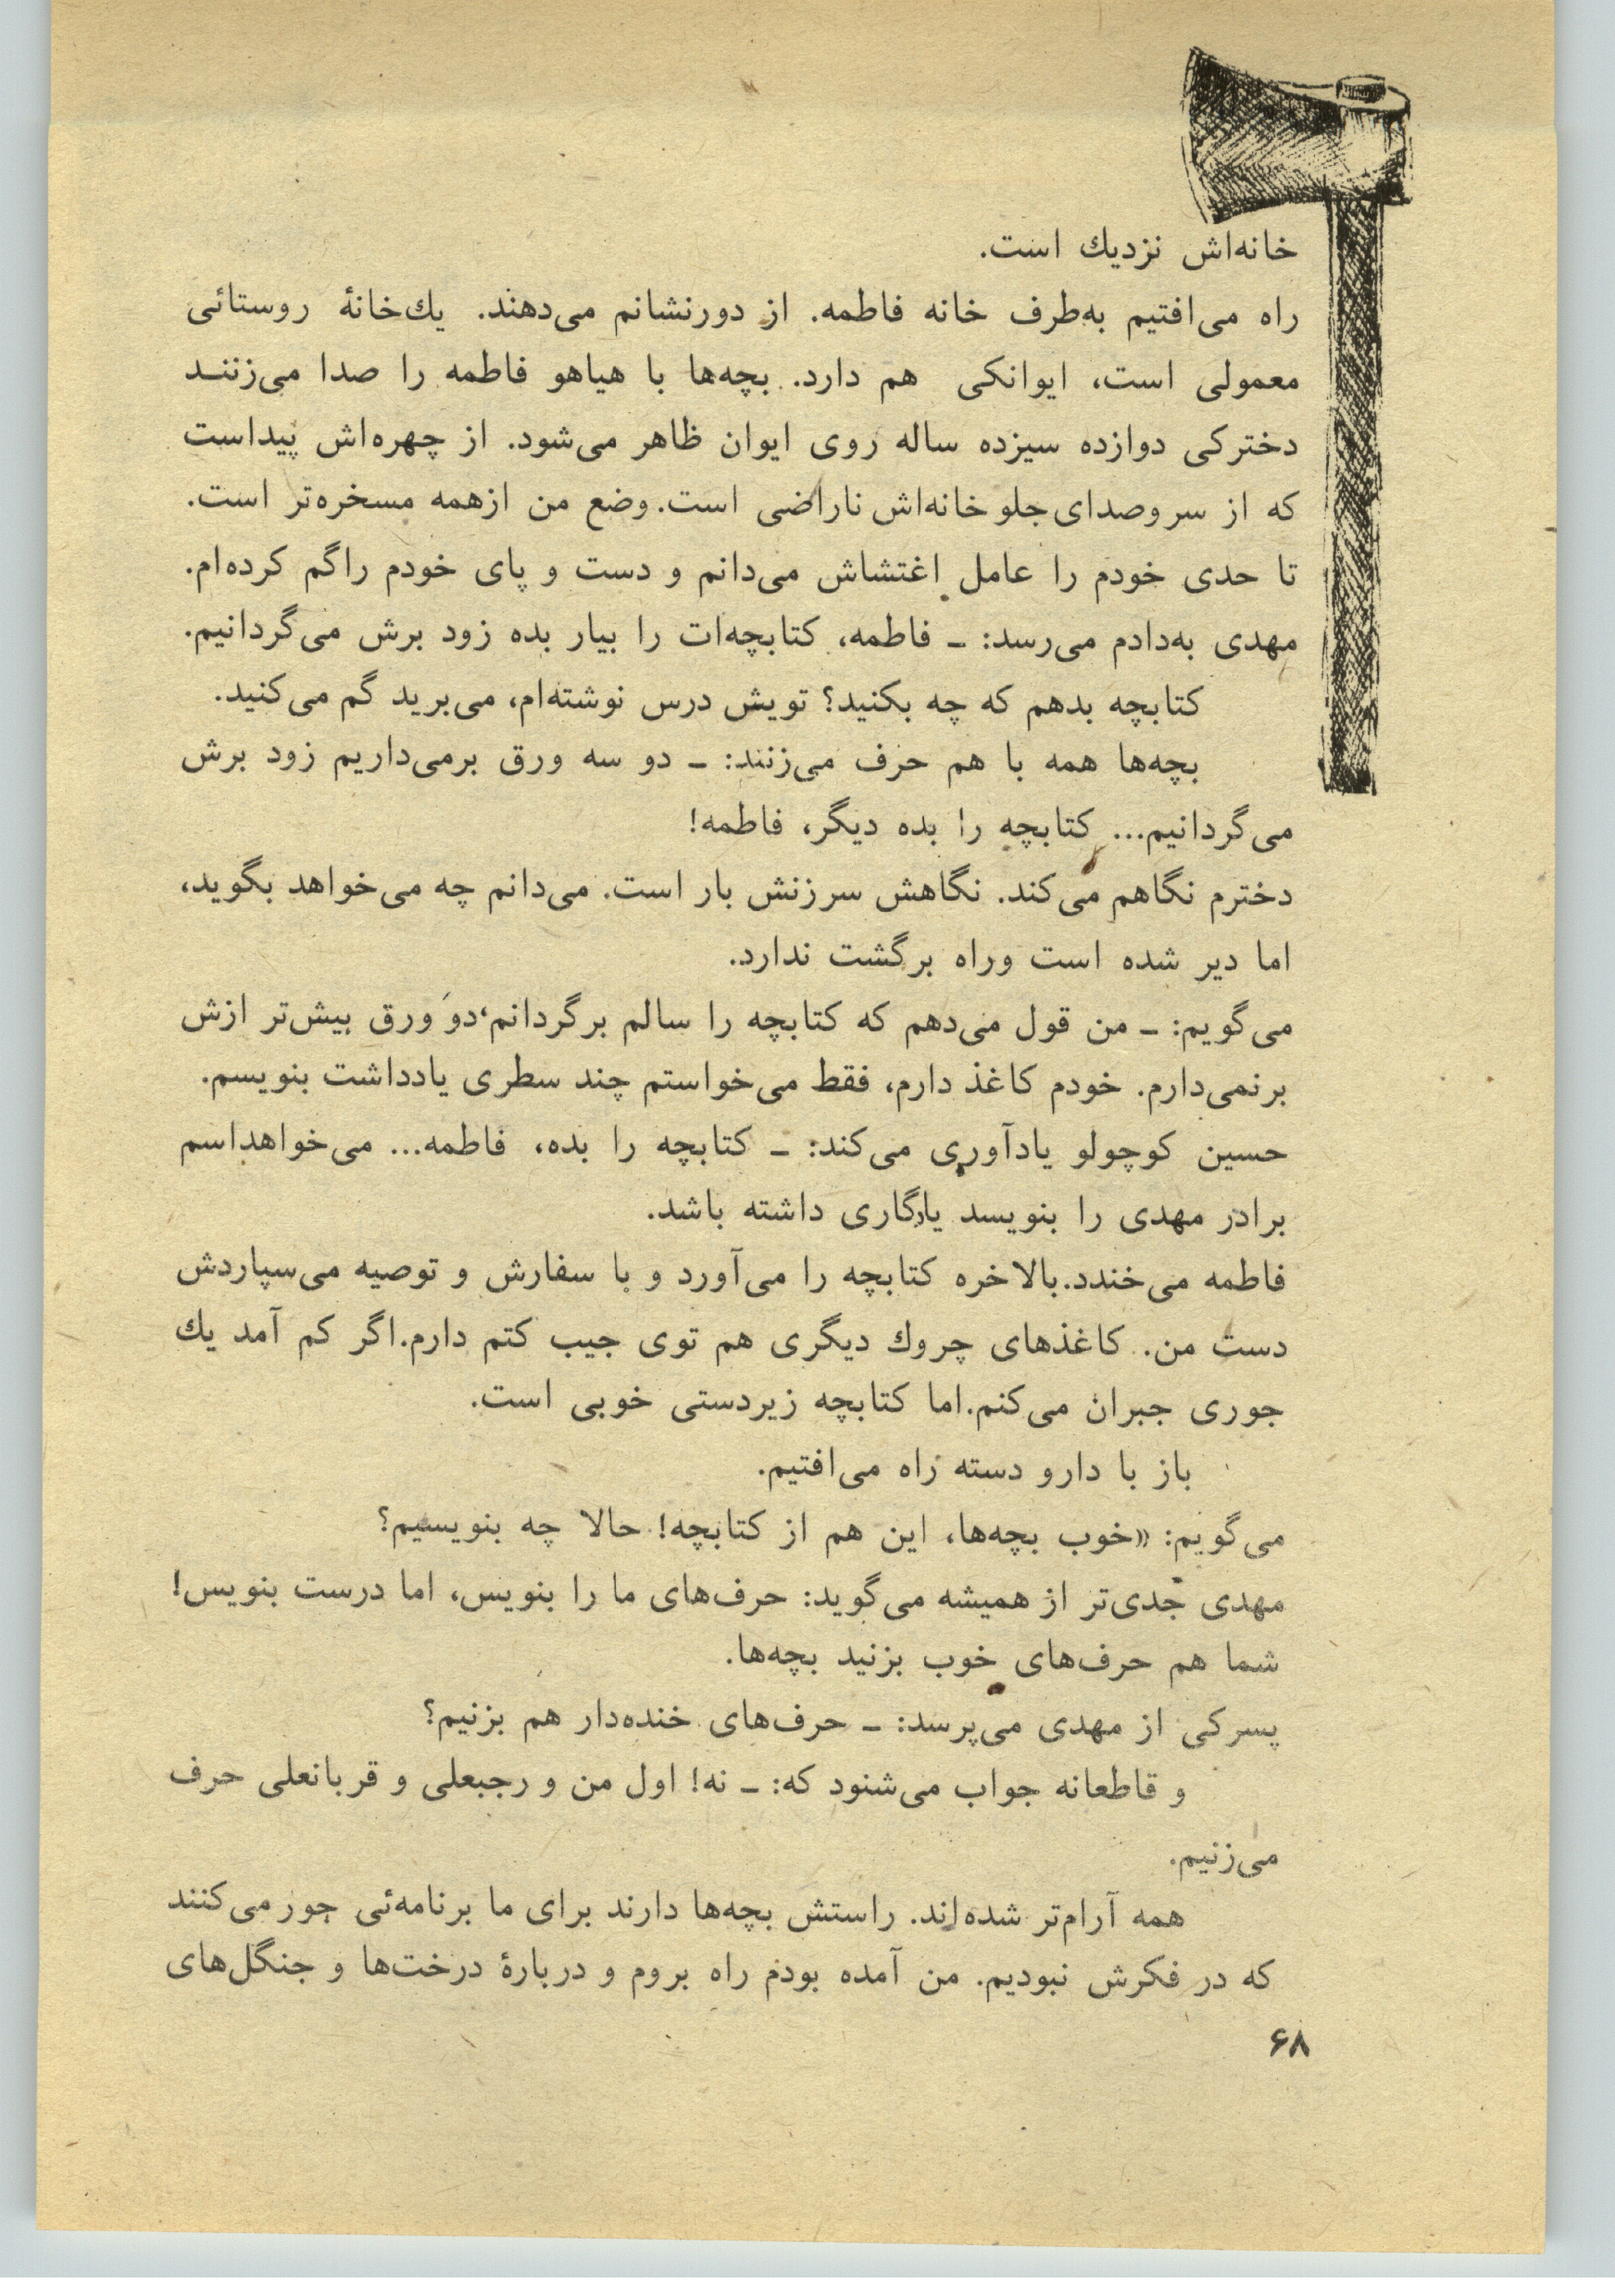 خانه‌اش نزدیك است.
راه می‌افتیم به‌طرف خانه فاطمه. از دورنشانم می‌دهند. یك‌خانهٔ روستائی
معمولی است، ایوانکی هم دارد. بچه‌ها با هیاهو فاطمه را صدا می‌زننـد
دخترکی دوازده سیزده ساله روی ایوان ظاهر می‌شود. از چهره‌اش پیداست
که از سروصدای‌جلو خانه‌اش ناراضی است. وضع من ازهمه مسخره‌تر است.
تا حدی خودم را عامل اغتشاش می‌دانم و دست و پای خودم راگم کرده‌ام.
مهدی به‌دادم می‌رسد: ـ فاطمه، کتابچه‌ات را بیار بده زود برش می‌گردانیم.
کتابچه بدهم که چه بکنید؟ تویش درس نوشته‌ام، می‌برید گم می‌کنید.
بچه‌ها همه با هم حرف می‌زنند: ـ دو سه ورق برمی‌داریم زود برش
می‌گردانیم... کتابچه را بده دیگر، فاطمه!
دخترم نگاهم می‌کند. نگاهش سرزنش بار است. می‌دانم چه می‌خواهد بگوید،
اما دیر شده است وراه برگشت ندارد.
می‌گویم: ـ من قول می‌دهم که کتابچه را سالم برگردانم،دو ورق بیش‌تر ازش
برنمی‌دارم. خودم کاغذ دارم، فقط می‌خواستم چند سطری یادداشت بنویسم.
حسین کوچولو یادآوری می‌کند: ـ کتابچه را بده، فاطمه... می‌خواهداسم
برادر مهدی را بنویسد یادگاری داشته باشد.
فاطمه می‌خندد.بالاخره کتابچه را می‌آورد و با سفارش و توصیه می‌سپاردش
دست من. کاغذهای چروك دیگری هم توی جیب کتم دارم.اگر کم آمد یك
جوری جبران می‌کنم.اما کتابچه زیردستی خوبی است.
باز با دارو دسته راه می‌افتیم.
می‌گویم: «خوب بچه‌ها، این هم از کتابچه! حالا چه بنویسیم؟
مهدی جدی‌تر از همیشه می‌گوید: حرف‌های ما را بنویس، اما درست بنویس!
شما هم حرف‌های خوب بزنید بچه‌ها.
پسرکی از مهدی می‌پرسد: ـ حرف‌های خنده‌دار هم بزنیم؟
و قاطعانه جواب می‌شنود که: ـ نه! اول من و رجبعلی و قربانعلی حرف
می‌زنیم.
همه آرام‌تر شده‌اند. راستش بچه‌ها دارند برای ما برنامه‌ئی جور می‌کنند
که در فکرش نبودیم. من آمده بودم راه بروم و دربارهٔ درخت‌ها و جنگل‌های
۶۸